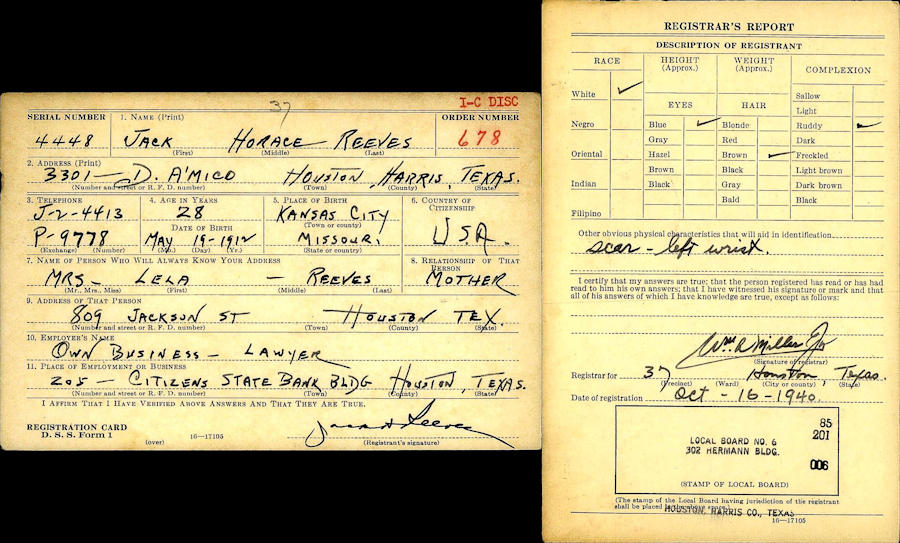 37
I-C DISC
SERIAL NUMBER 1. NAME (Print) ORDER NUMBER
4448 JACK HORACE REEVES 678
(First) (Middle) (Last)
2. ADDRESS (Print)
3301 — D. A'MICO HOUSTON, HARRIS, TEXAS.
(Number and street or R. F. D. number) (Town) (County) (State)
3. TELEPHONE 4. AGE IN YEARS 5. PLACE OF BIRTH 6. COUNTRY OF CITIZENSHIP
J-2-4413 28 KANSAS CITY
(Town or county)
DATE OF BIRTH
P-9778 MAY 19-1912 MISSOURI. U.S.A.
(Exchange) (Number) (Mo.) (Day) (Yr.) (State or country)
7. NAME OF PERSON WHO WILL ALWAYS KNOW YOUR ADDRESS 8. RELATIONSHIP OF THAT PERSON
MRS — LELA — REEVES MOTHER
(Mr., Mrs., Miss) (First) (Middle) (Last)
9. ADDRESS OF THAT PERSON
809 JACKSON ST — HOUSTON TEX.
(Number and street or R. F. D. number) (Town) (County) (State)
10. EMPLOYER'S NAME
OWN BUSINESS — LAWYER
11. PLACE OF EMPLOYMENT OR BUSINESS
205 — CITIZENS STATE BANK BLDG HOUSTON, TEXAS.
(Number and street or R. F. D. number) (Town) (County) (State)
I AFFIRM THAT I HAVE VERIFIED ABOVE ANSWERS AND THAT THEY ARE TRUE.
REGISTRATION CARD
D. S. S. Form 1 (over) 16—17105 Jack H Reeves
(Registrant's signature)
REGISTRAR'S REPORT
DESCRIPTION OF REGISTRANT
RACE HEIGHT (Approx.) WEIGHT (Approx.) COMPLEXION
White ✓ Sallow
Light
EYES HAIR
Negro Blue ✓ Blonde Ruddy ✓
Gray Red Dark
Oriental Hazel Brown ✓ Freckled
Brown Black Light brown
Indian Black Gray Dark brown
Bald Black
Filipino
Other obvious physical characteristics that will aid in identification
scar - left wrist.
I certify that my answers are true; that the person registered has read or has had
read to him his own answers; that I have witnessed his signature or mark and that
all of his answers of which I have knowledge are true, except as follows:
Wm R Miller Jr
(Signature of registrar)
Registrar for 37 Houston, Texas.
(Precinct) (Ward) (City or county) (State)
Date of registration Oct - 16 - 1940.
85
201
LOCAL BOARD NO. 6
302 HERMANN BLDG.
006
(STAMP OF LOCAL BOARD)
(The stamp of the Local Board having jurisdiction of the registrant
shall be placed in the above space.)
HOUSTON, HARRIS CO., TEXAS
16—17105